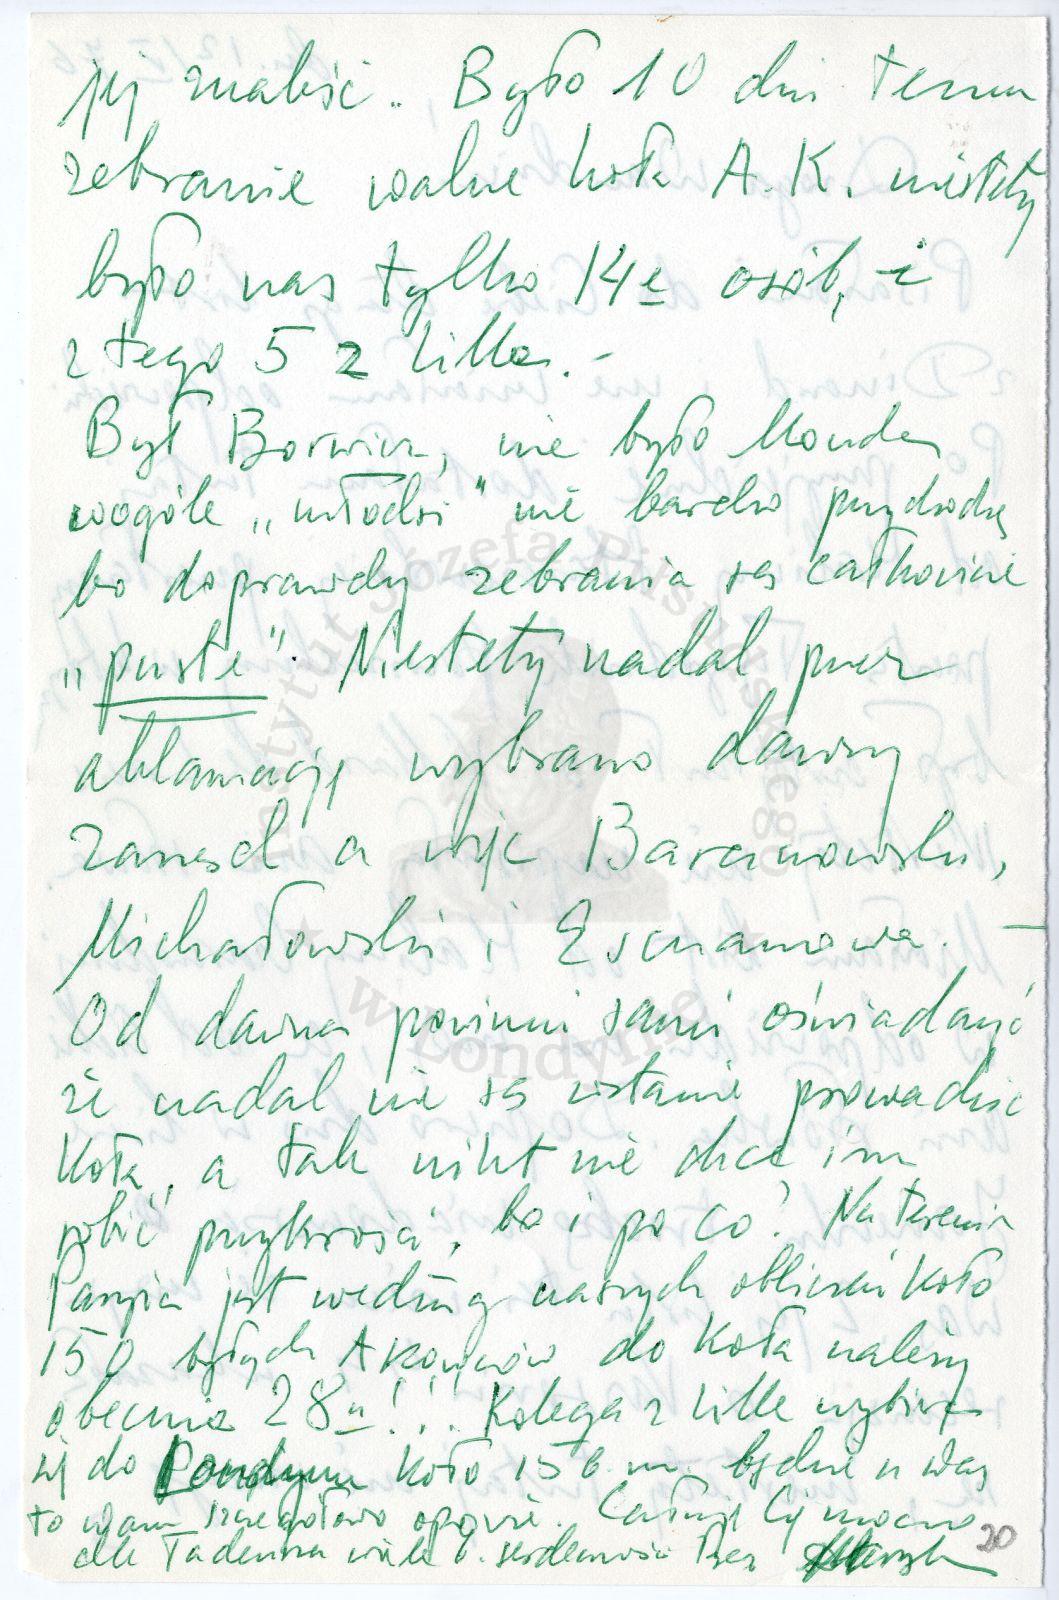 jej znaleść.. Było 10 dni temu
zebranie walne koła A.K. niestety
było nas tylko 14e osób, i
z tego 5 z Lille. –
Był Borwicz, nie było Mouda
wogóle „młodzi" nie bardzo przychodzą
bo doprawdy zebrania są całkowicie
„puste". Niestety nadal przez
aklamację wybrano dawny
zarząd a więc Baranowski,
Michałowski i –
Od dawna powinni sami oświadczyć
że nadal nie są wstanie prowadzić
Koła, a tak nikt nie chce im
robić przykrości, bo i po co? Na terenie
Paryża jest według naszych obliczeń koło
150 byłych AKowców do Koła należy
obecnie 28u!!!. Kolega z Lille wybiera
się do Londynu koło 15 b.m. będzie u was
to wam szczegółowo opowie. Całuję Cię mocno
dla Tadeusza wiele b. serdeczności
20
Instytut Józefa Piłsudskiego
w Londynie